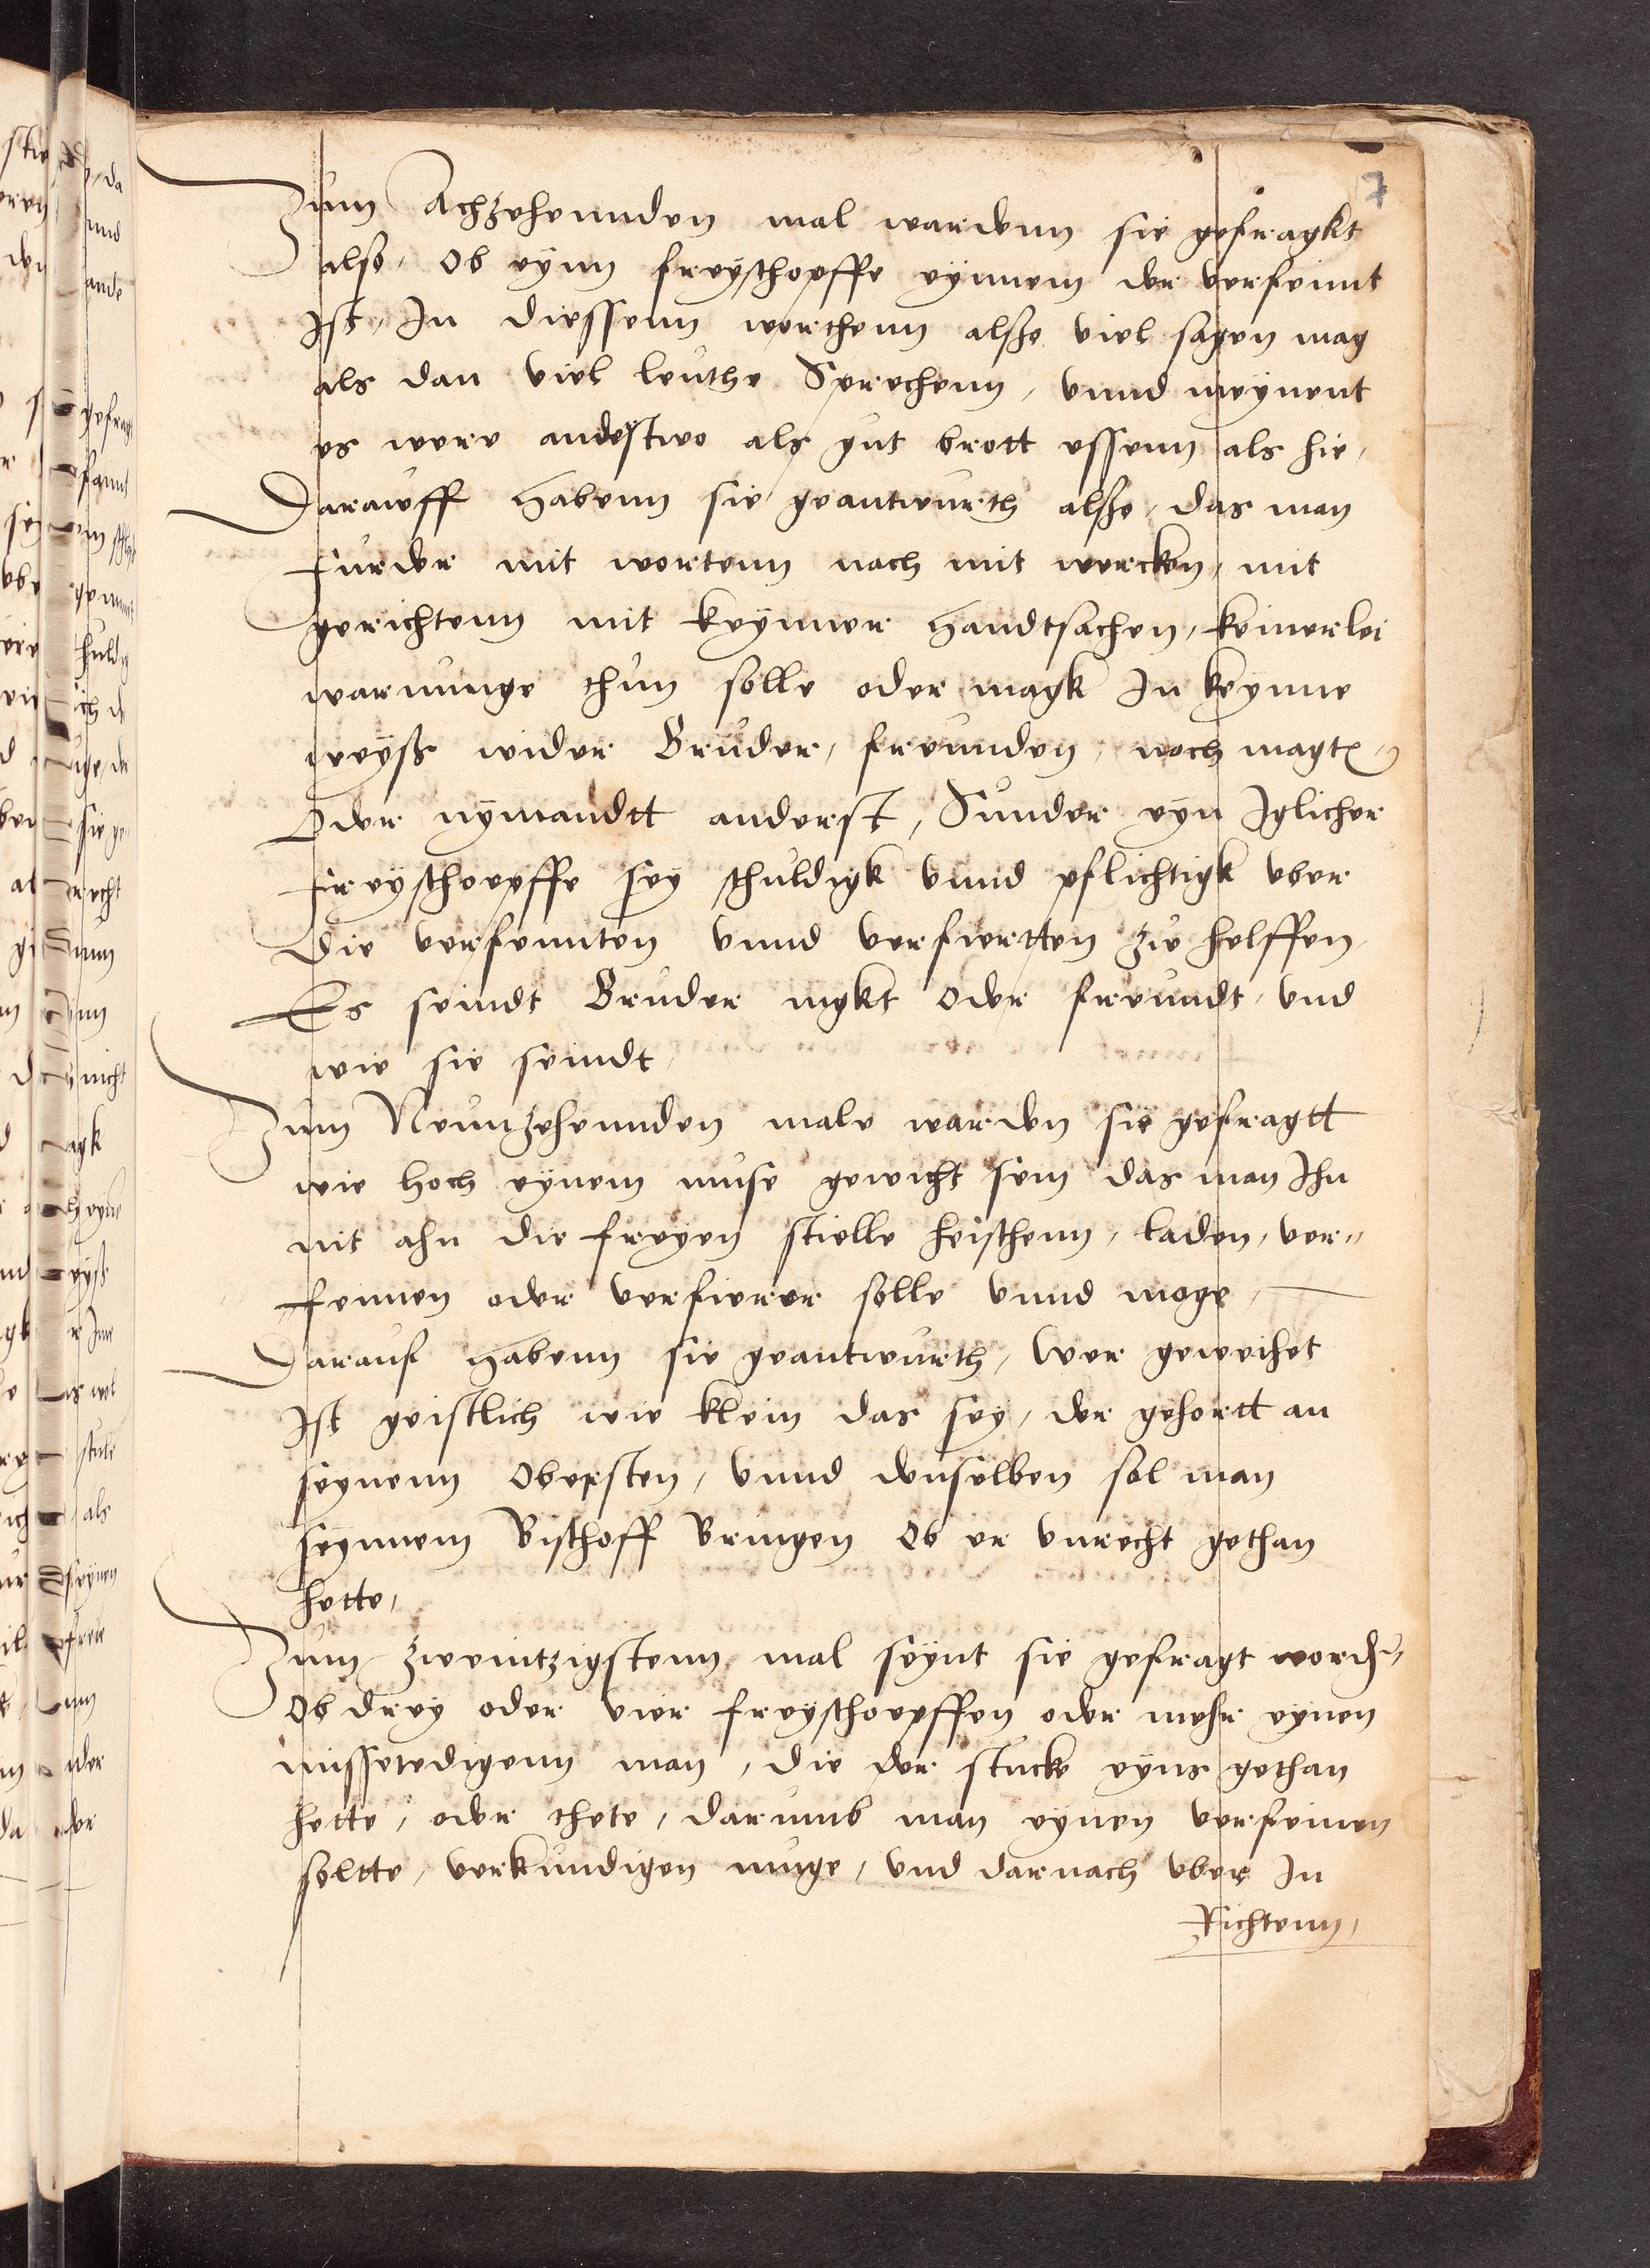 7
Zum Achzehennden mal wardenn sie gefragkt
also, Ob eynn freyschopffe eynnem der verfeimt
Ist, In diessenn werthenn alße viel sagen mag
als dan viel leuthe Sprechenn, vnnd meynent
es were anderstwo als gut brott essenn als hie,
Darauff habenn sie geantwurth alße, das man
furder mit wortenn nach mit wercken, mit
gerichtenn mit keynner handtsachen, keinerlei
warnunge thun solle oder magk In keynne
weyß wider Bruder, freunden, noch magtt,
Oder nymandtt anderst, Sunder eyn Iglicher
freyschoepffe sey schuldigk vnnd pflichtigk vber
Die verfemten vnnd verfuertten zu helffen,
Es seindt Bruder mgkt oder freundt, vnd
wie sie seindt,
Zum Neunzehennden male warden sie gefragtt
wie hoch eynem muse gewicht sein das man Ihn
nit ahn die freyen stielle heischenn, laden, ver„
„feimen oder verfierer solle vnnd moge,
Darauf habenn sie geantwurth, Wer geweihet
Ist geistlich wie klein das sey, der gehortt an
seynenn Obersten, vnnd denselben sol man
seynnem Bischoff Bringen Ob er vnrecht gethan
hette,
Zum zweintzigstenn mal seynt sie gefragt word,
Ob drey oder vier freyschoepffen oder mehr eynen
missetedigenn man, die der stucke eyns gethan
hette, oder thete, darumb man eynen verfeimen
soltte, verkundigen muge, vnd darnach vber In
Richtenn,